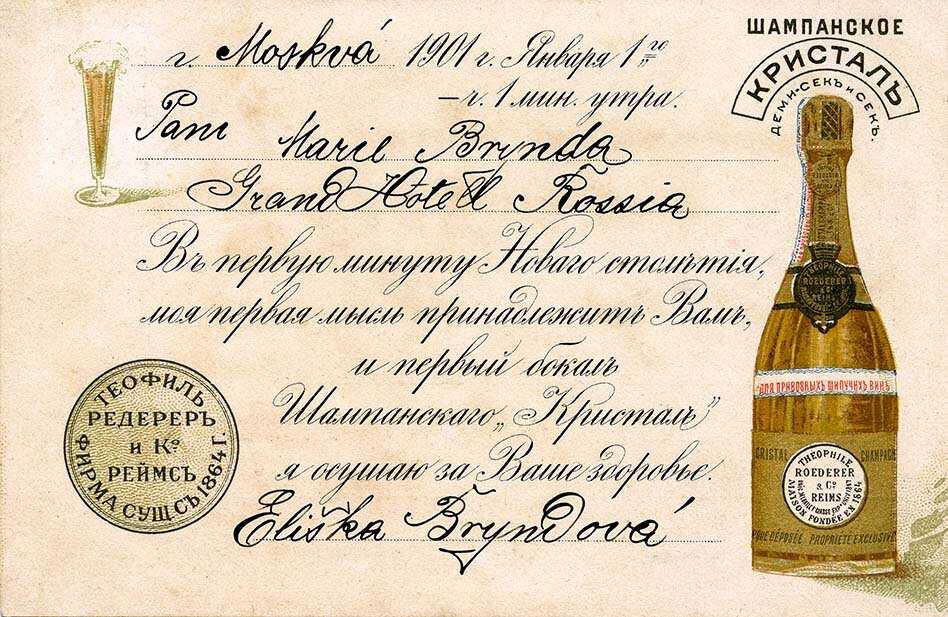 г. Moskvá 1901 г. Января 1го
— ч. 1 мин. утра.
Paní Marie Brynda
Grand Hotell Rossia
Въ первую минуту Новаго столѣтія,
моя первая мысль принадлежитъ Вамъ,
и первый бокалъ
Шампанскаго „Кристалъ”
я осушаю за Ваше здоровье.
Eliška Bryndová
ШАМПАНСКОЕ
КРИСТАЛЪ
ДЕМИ-СЕКЪ И СЕКЪ.
ТЕОФИЛЬ
РЕДЕРЕРЪ
и Ко
РЕЙМСЪ
ФИРМА СУЩ. СЪ 1864 Г.
THÉOPHILE
ROEDERER
& Co
REIMS
ДЛЯ ПРИВОЗНЫХЪ ШИПУЧИХЪ ВИНЪ
CRISTAL CHAMPAGN
THEOPHILE
ROEDERER
& Co
REIMS
MAISON FONDÉE EN 1864
QUE DÉPOSÉE PROPRIÉTÉ EXCLUSIVE